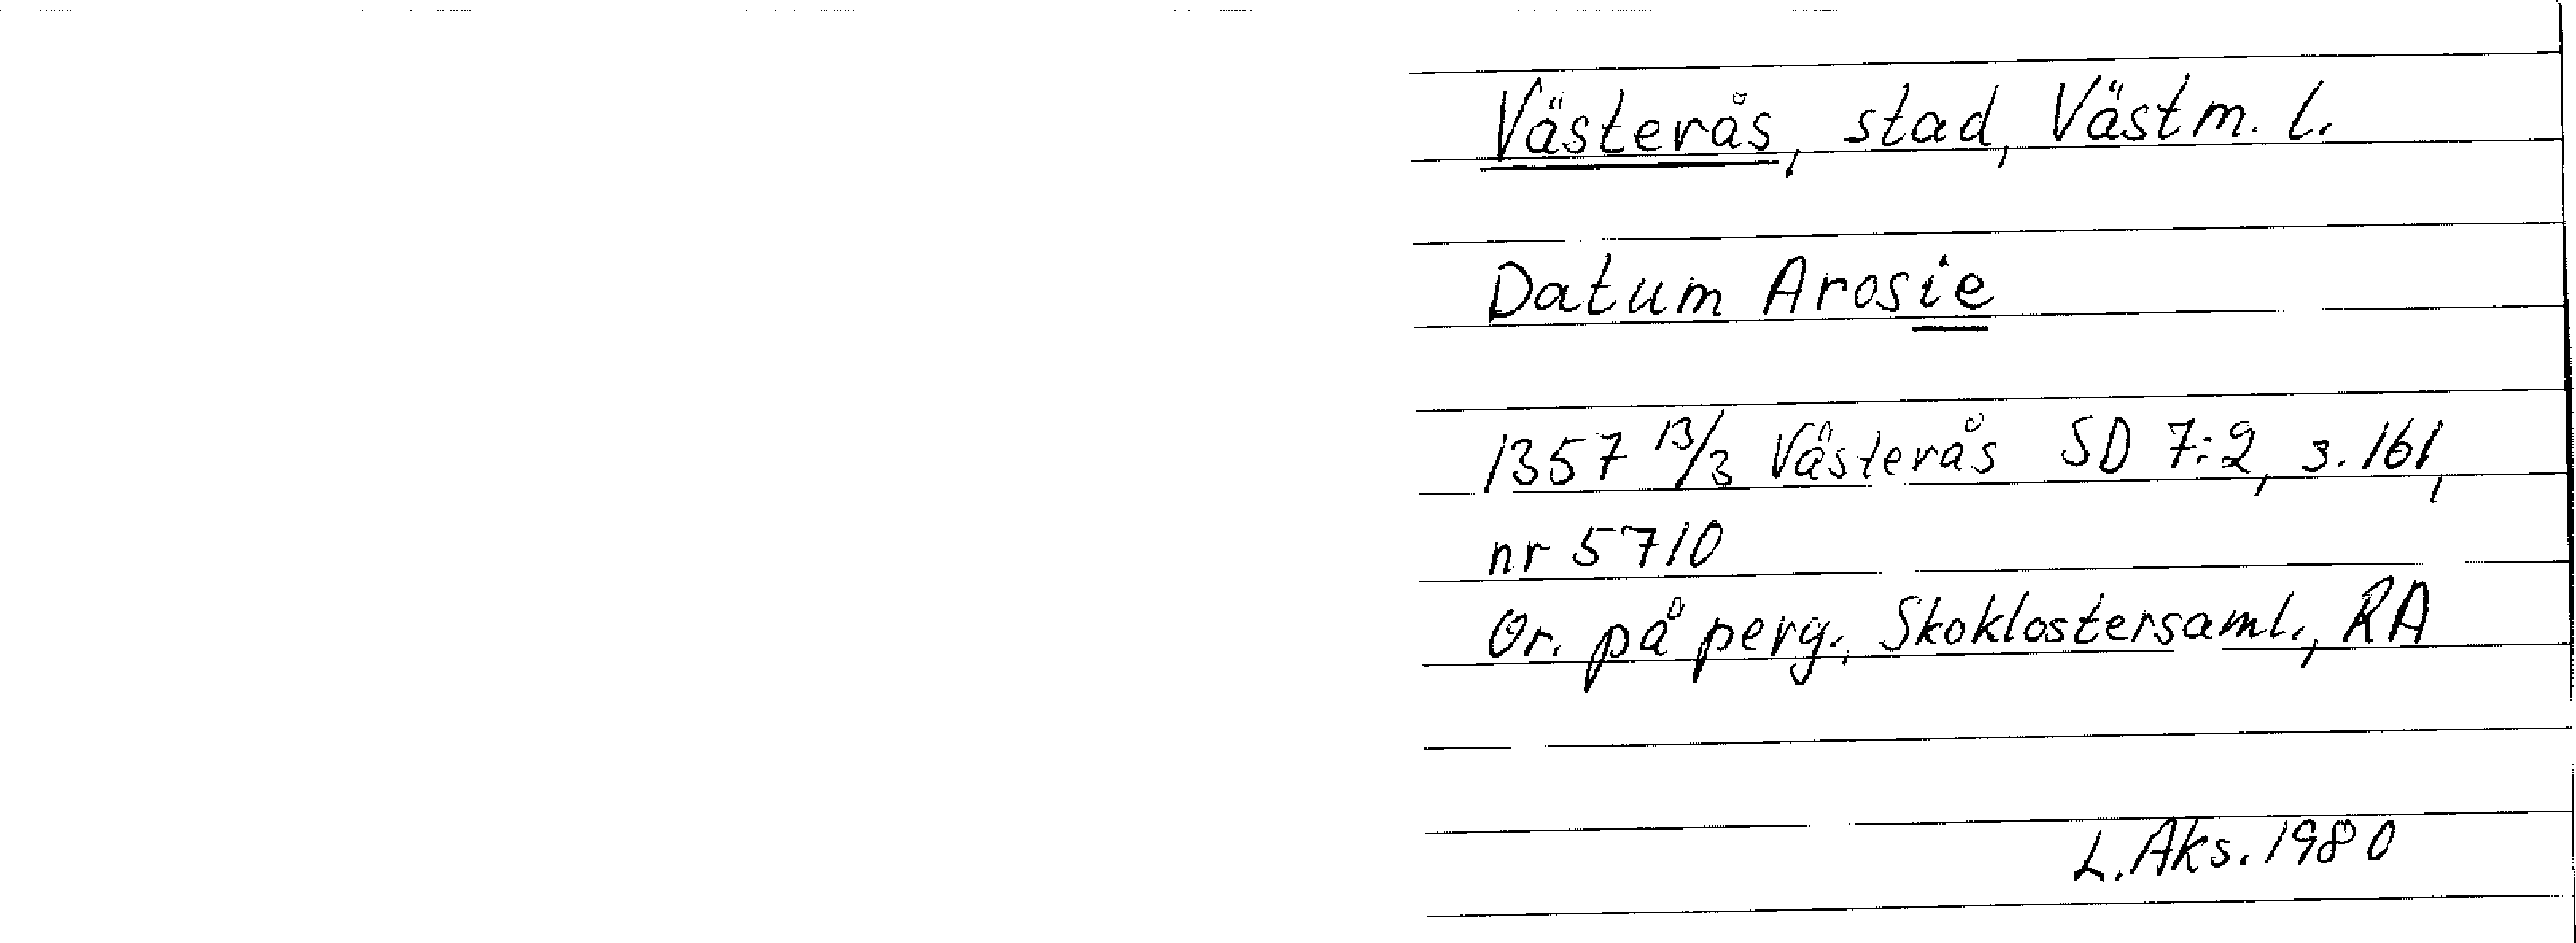 Västerås, stad, Västm. l.
Datum Arosie
1357 13/3 Västerås SD 7:2, s. 161,
nr 5710
Or. på perg., Skoklostersaml., RA
L. Aks. 1980